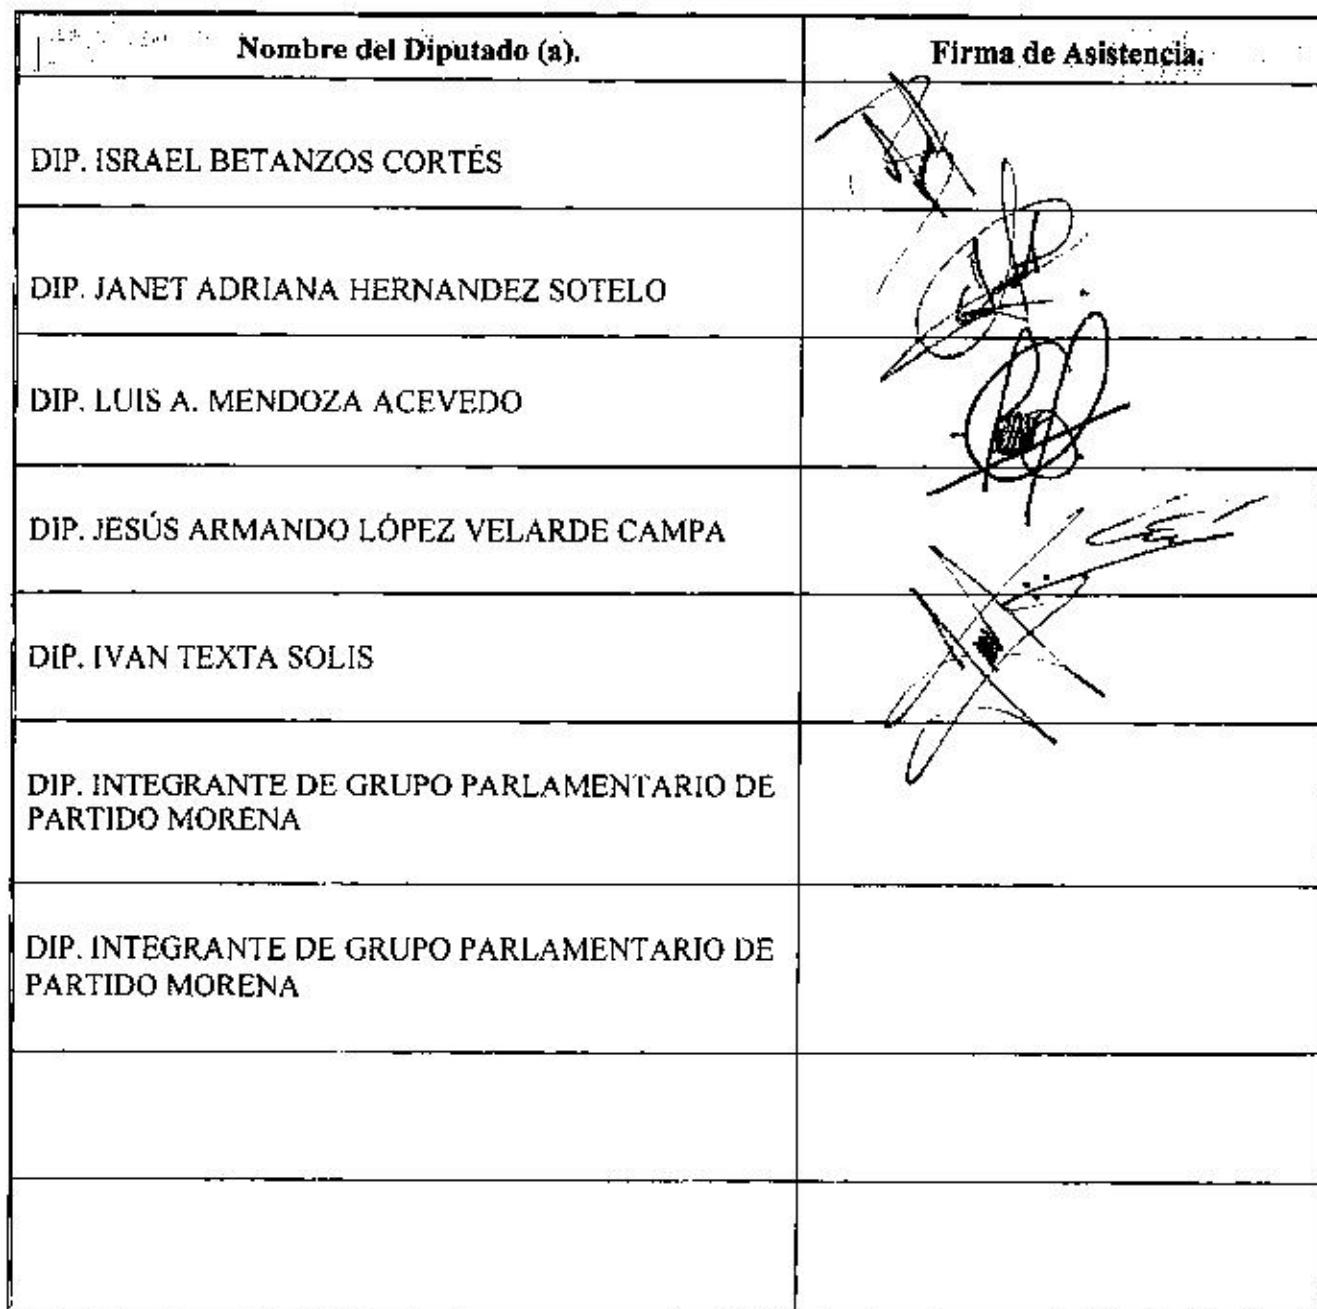 Nombre del Diputado (a).
Firma de Asistencia.
DIP. ISRAEL BETANZOS CORTÉS
DIP. JANET ADRIANA HERNANDEZ SOTELO
DIP. LUIS A. MENDOZA ACEVEDO
DIP. JESÚS ARMANDO LÓPEZ VELARDE CAMPA
DIP. IVAN TEXTA SOLIS
DIP. INTEGRANTE DE GRUPO PARLAMENTARIO DE
PARTIDO MORENA
DIP. INTEGRANTE DE GRUPO PARLAMENTARIO DE
PARTIDO MORENA